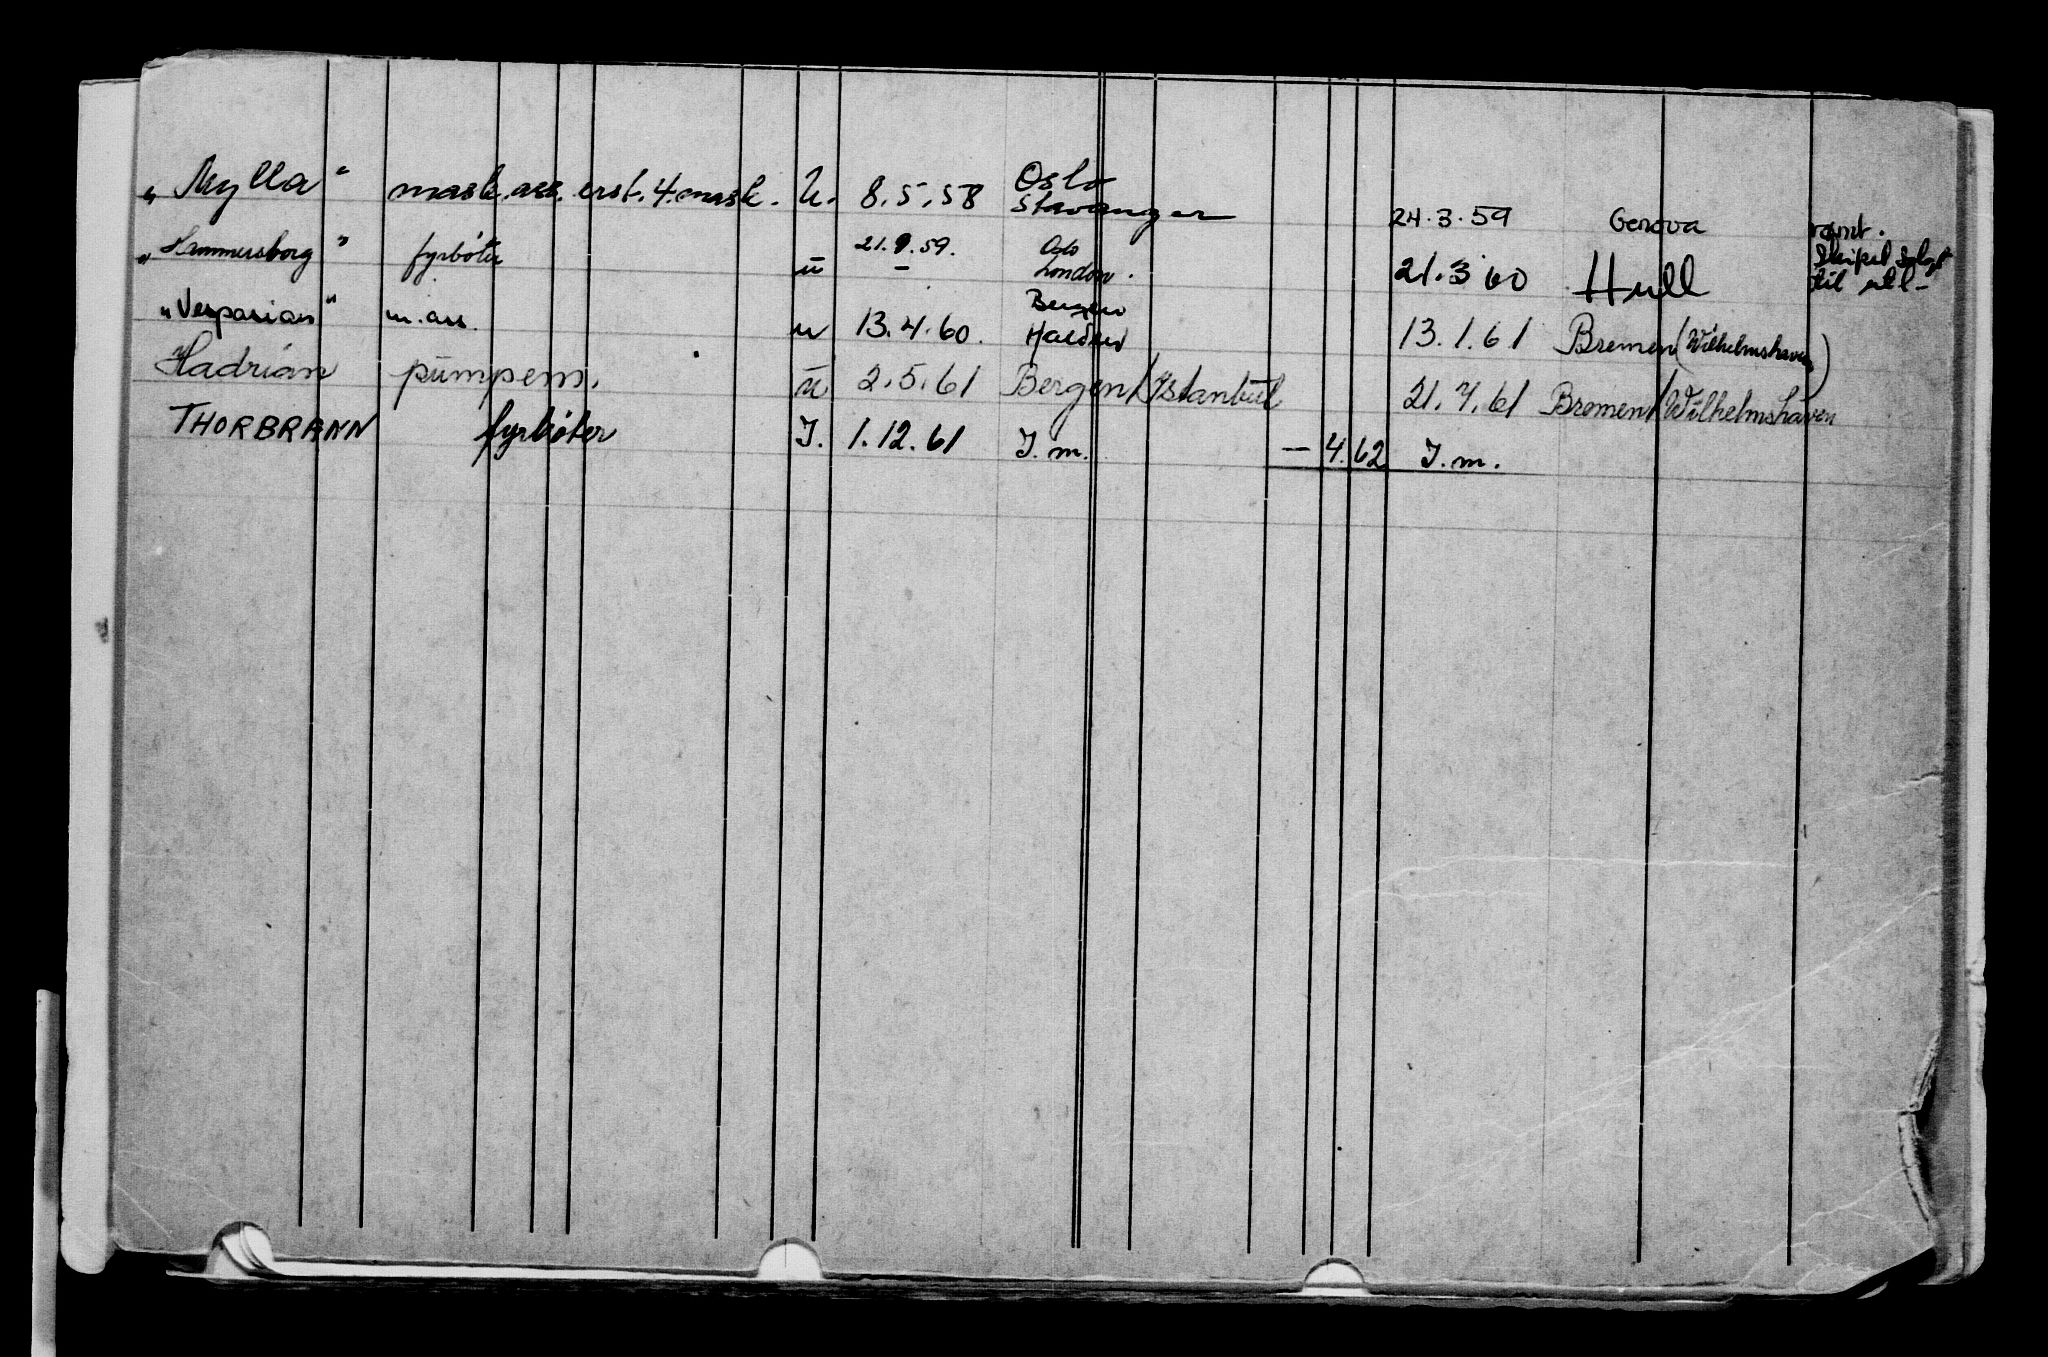 „Mylla" mask.ass. erst. 4. mask. U. 8.5.58 Oslo Stavanger 24.3.59 Genova
„Hammersborg" fyrbøter u 21.9.59. Oslo London. 21.3 60 Hull Skipet solgt til utl-
„Vespasian" m.ass. u 13.4.60. Bergen Halden 13.1.61 Bremen (Wilhelmshaven)
Hadrian pumpem. u 2.5.61 Bergen/Istanbul 21.7.61 Bremen/Wilhelmshaven
THORBRANN fyrbøter I. 1.12.61 I.m. — 4.62 I.m.